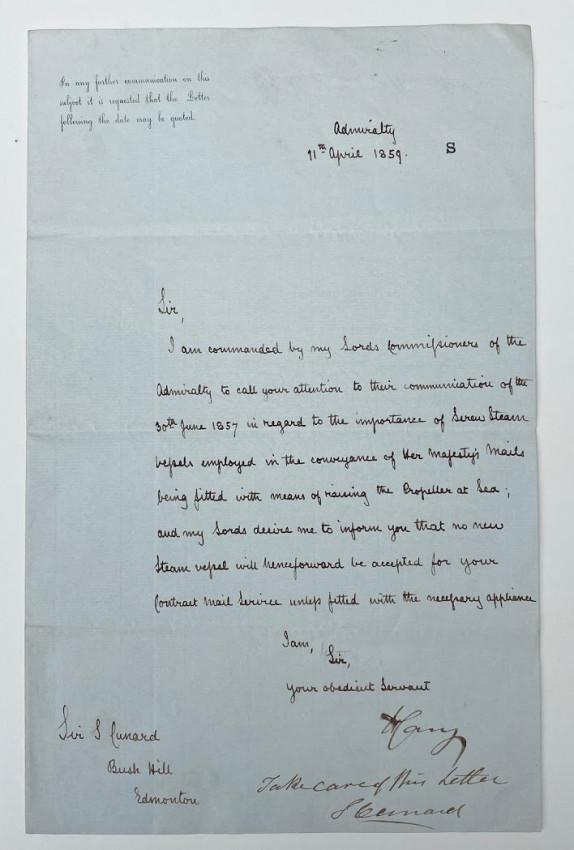 In any further communication on this
subject it is requested that the Letter
following the date may be quoted.
Admiralty
11th April 1859. S
Sir,
I am commanded by my Lords Commissioners of the
Admiralty to call your attention to their communication of the
30th June 1857 in regard to the importance of Screw Steam
vessels employed in the conveyance of Her Majesty's Mails
being fitted with means of raising the Propeller at Sea;
and my Lords desire me to inform you that no new
Steam vessel will henceforward be accepted for your
Contract Mail Service unless fitted with the necessary appliance
I am,
Sir,
your obedient Servant
Sir S Cunard
Bush Hill
Edmonton
Take care of this Letter
S Cunard